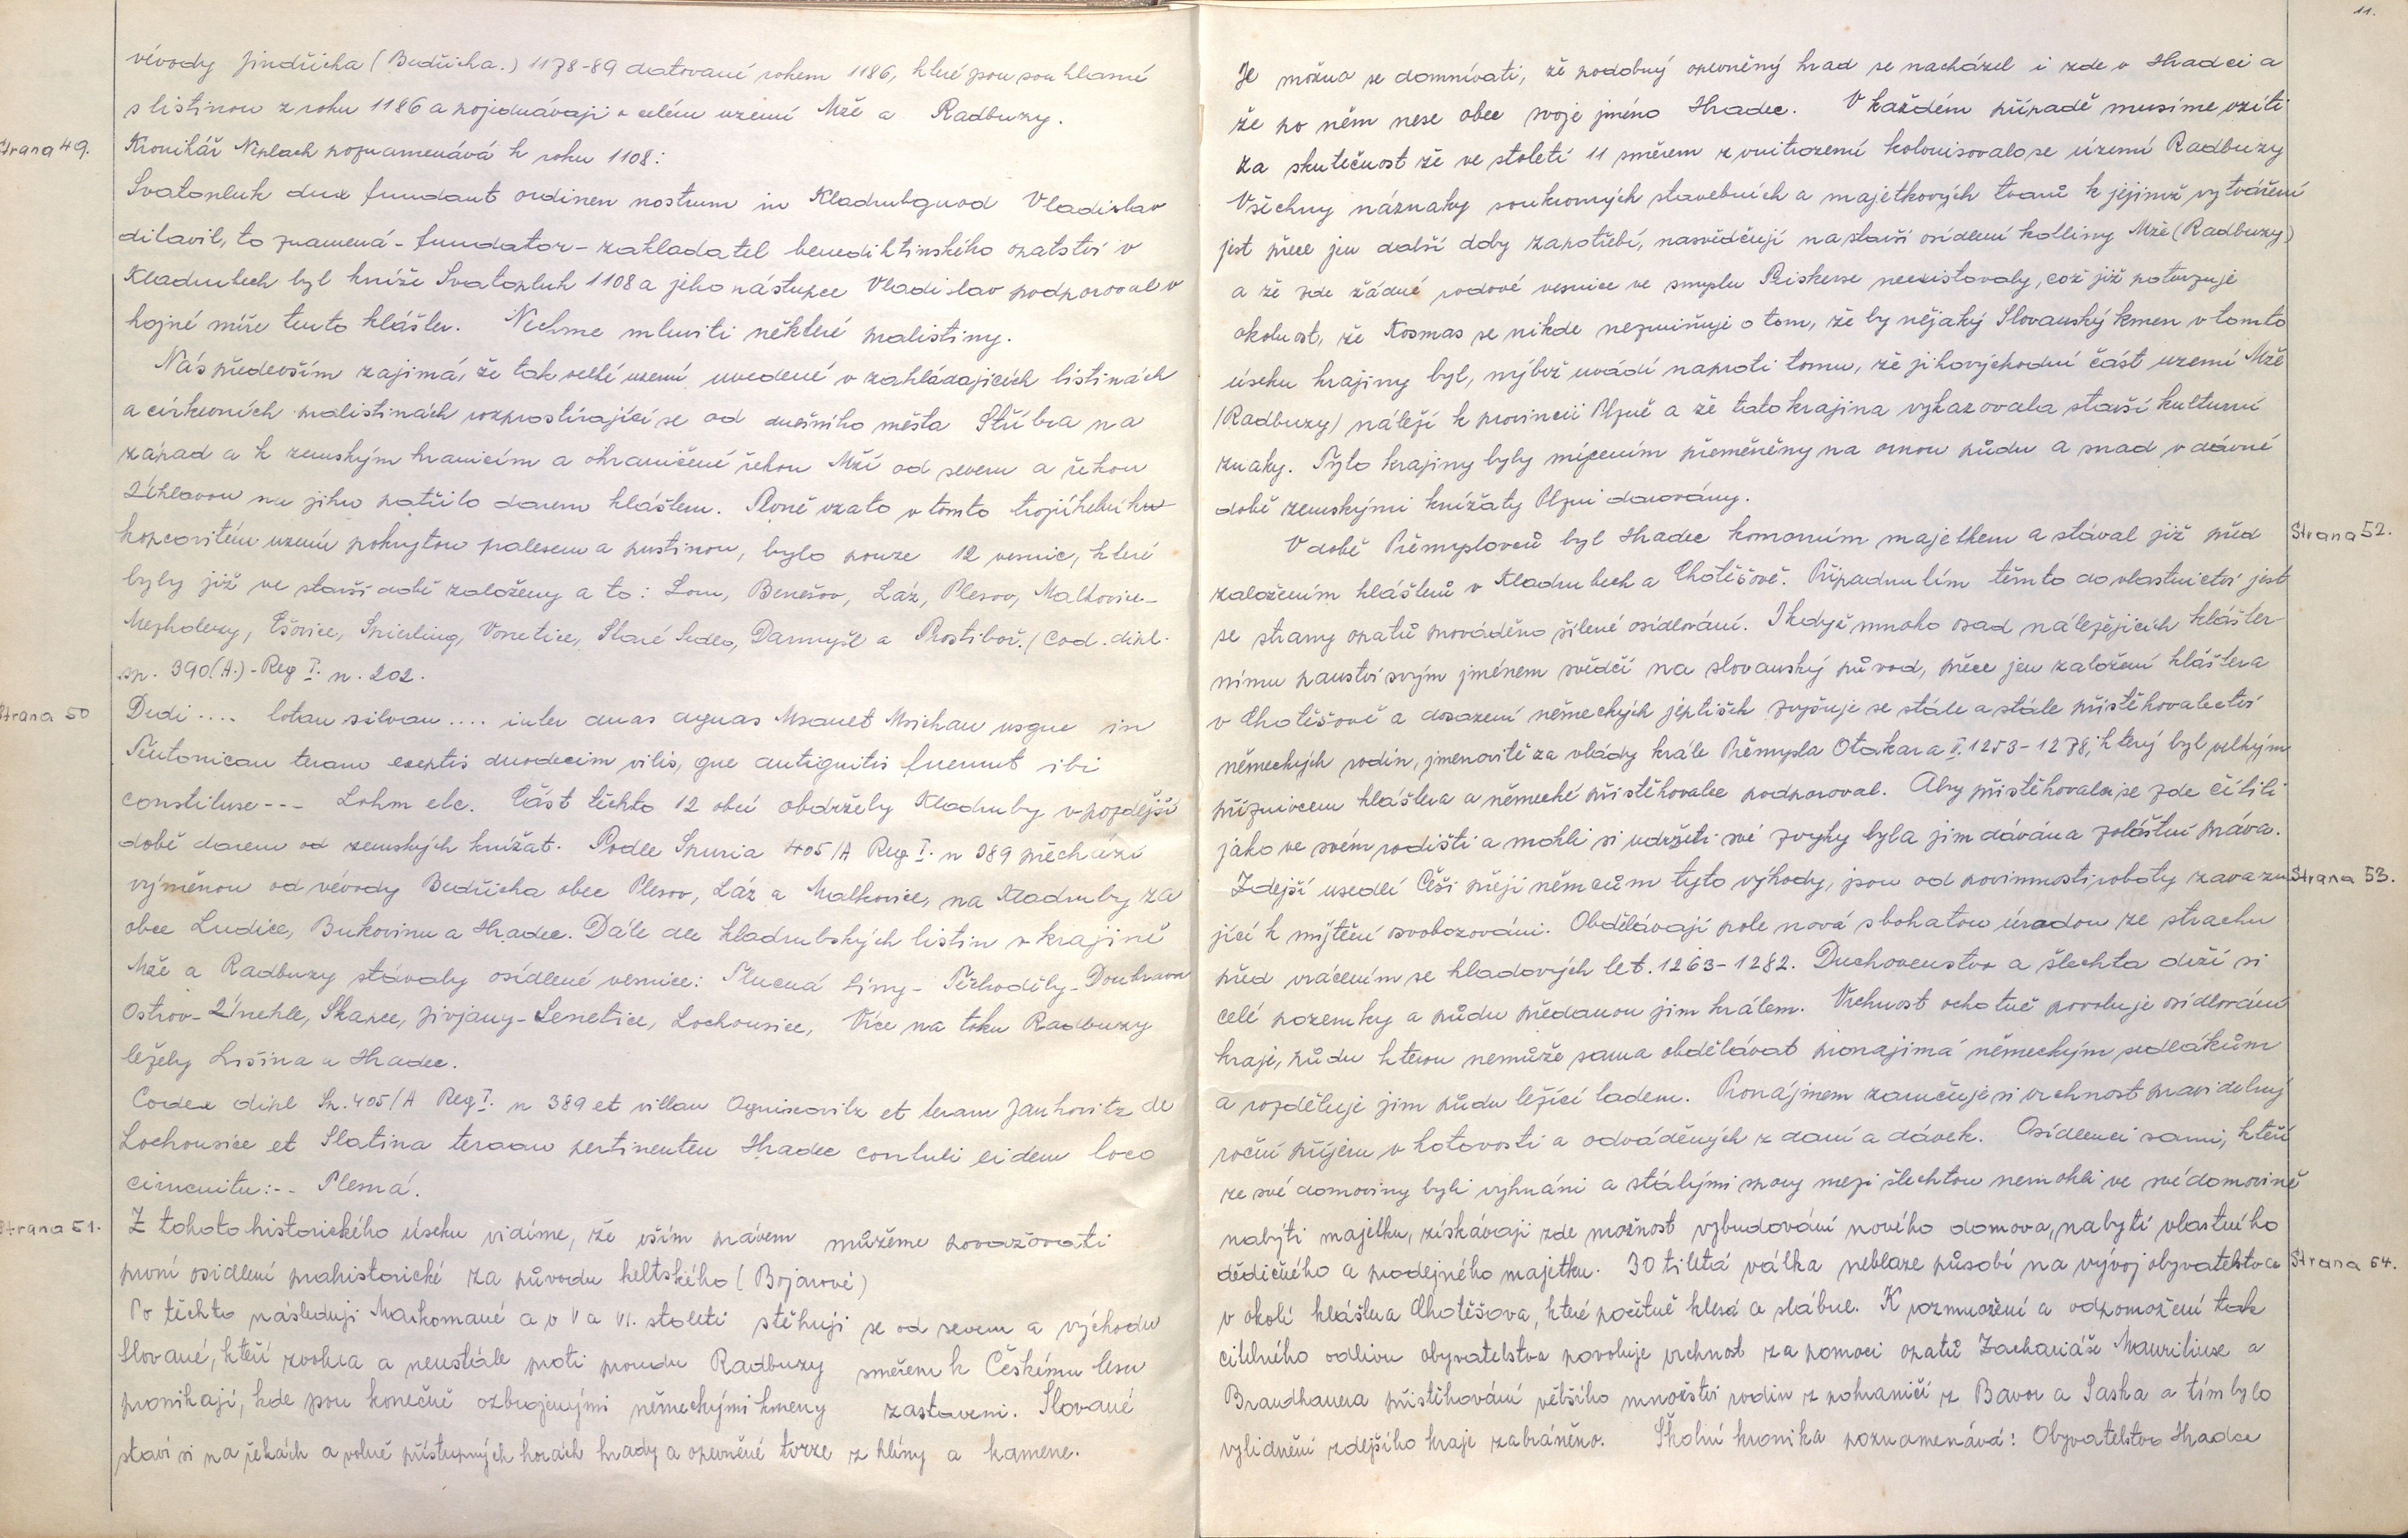 vévody Jindřicha (Bedřicha.) 1178-89 datované rokem 1186, které jsou souhlasné
s listinou z roku 1186 a pojednávají o celém uzemí Mže a Radbuzy.
Strana 49.
Kronikář Neplach poznamenává k roku 1108:
Svatopluk dux fundant ordinen nostrum in Kladrubguod Vladislav
ditavil, to znamená - fundator - zakladatel benediktinského opatství v
Kladrubech byl kníže Svatopluk 1108 a jeho nástupce Vladislav podporoval v
hojné míře tento klášter. Nechme mluviti některé pralistiny.
Nás především zajímá, že tak velké uzemí uvedené v zakládajících listinách
a církevních pralistinách rozprostírající se od dnešního města Stříbra na
západ a k zemským hranicím a ohraničené řekou Mží od severu a řekou
Úhlavou na jihu patřilo darem klášteru. Plně vzato v tomto trojúhelníku
kopcovitém uzemí pokrytou pralesem a pustinou, bylo pouze 12 vesnic, které
byly již ve starší době založeny a to: Lom, Benešov, Láz, Plesov, Malkovice-
Mezholezy, Ešovice, Spierling, Vonetice, Staré Sedlo, Darmyšl a Prostiboř. /Cod. dipl.
sp. 390(A.) - Reg I. n. 202.
Strana 50
Dedi.... totau silvau.... inter duas aguas Msauet Msichau usgue in
Teutonicau teram exeptis duodecim vilis, gue antiguitis fuerunt ibi
constituse--- Lohm etc. Část těchto 12 obcí obdržely Kladruby v pozdější
době darem od zemských knížat. Podle Spuria 405/A Reg I. n 389 přechází
výměnou od vévody Bedřicha obce Plesov, Láz a Malkovice, na Kladruby za
obce Ludice, Bukovinu a Hradec. Dále dle kladrubských listin v krajině
Mže a Radbuzy stávaly osídlené vesnice: Tlucná Liny - Těchodily - Doubrava
Ostrov - Únehle, Skapce, Jivjany - Lenetice, Lochousice, Více na toku Radbuzy
ležely Lisina a Hradec.
Codex dipl Sp. 405/A Reg I. n 389 et villau Ogniscovitz et teram Jankovitz de
Lochousice et Slatina teraau pertinenteu Hradec contuli eidem loco
circuitu:-- Plesná.
Strana 51.
Z tohoto historického úseku vidíme, že vším právem můžeme považovati
první osídlení prahistorické za původu keltského (Bojarové)
Po těchto následují Markomané a v V a VI. století stěhují se od severu a východu
Slované, kteří zvolna a neustále proti proudu Radbuzy směrem k Českému lesu
pronikají, kde jsou konečně ozbrojenými německými kmeny zastaveni. Slované
staví si na řekách a volně přístupných horách hrady a opevněné tvrze z hlíny a kamene.
11.
Je možno se domnívati, že podobný opevněný hrad se nacházel i zde v Hradci a
že po něm nese obec svoje jméno Hradec. V každém případě musíme vzíti
za skutečnost že ve století 11 směrem z vnitrozemí kolonisovalo se území Radbuzy
Všechny náznaky soukromých stavebních a majetkových tvarů k jejimž vytváření
jest přece jen další doby zapotřebí, nasvědčují na starší osídlení kotliny Mže (Radbuzy)
a že zde žádné rodové vesnice ve smyslu Piskerse neexistovaly, což již potvrzuje
okolnost, že Kosmas se nikde nezmiňuje o tom, že by nějaký Slovanský kmen v tomto
úseku krajiny byl, nýbrž uvádí naproti tomu, že jihovýchodní část uzemí Mže
/Radbuzy/ náleží k provincii Plzně a že tato krajina vykazovala starší kulturní
znaky. Tyto krajiny byly mýcením přeměněny na ornou půdu a snad v dávné
době zemskými knížaty Plzni darovány.
Strana 52.
V době Přemyslovců byl Hradec komorním majetkem a stával již před
založením klášterů v Kladrubech a Chotěšově. Připadnutím těmto do vlastnictví jest
se strany opatů prováděno sílené osídlování. I když mnoho osad náležejících klášter-
nímu panství svým jménem svědčí na slovanský původ, přece jen založení kláštera
v Chotěšově a dosazení německých jeptišek zvyšuje se stále a stále přistěhovalectví
německých rodin, jmenovitě za vlády krále Přemysla Otakara II. 1253-1278, který byl velkým
příznivcem kláštera a německé přistěhovalce podporoval. Aby přistěhovalci se zde cítili
jako ve svém rodišti a mohli si udržeti své zvyky byla jim dávána zvláštní práva.
Strana 53.
Zdejší usedlí Češi přejí němcům tyto výhody, jsou od povinnosti roboty zavazu
jící k mýtění osvobozováni. Obdělávají pole nová s bohatou úrodou ze strachu
před vrácením se hladových let. 1263-1282. Duchovenstvo a šlechta drží si
celé pozemky a půdu předanou jim králem. Vrchnost ochotně povoluje osídlování
kraje, půdu kterou nemůže sama obdělávat pronajímá německým sedlákům
a rozděluje jim půdu ležící ladem. Pronájmem zaručuje si vrchnost pravidelný
roční příjem v hotovosti a odváděných z daní a dávek. Osídlenci sami, kteří
ze své domoviny byli vyhnáni a stálými spory mezi šlechtou nemohli ve své domovině
nabýti majetku, získávají zde možnost vybudování nového domova, nabytí vlastního
Strana 54.
dědičného a prodejného majetku. 30 tiletá válka neblaze působí na vývoj obyvatelstva
v okolí kláštera Chotěšova, které početně klesá a slábne. K rozmnožení a odpomožení tak
citelného odlivu obyvatelstva povoluje vrchnost za pomoci opatů Zachariáše Mauritiuse a
Brandhauera přistěhování většího množství rodin z pohraničí z Bavor a Saska a tím bylo
vylidnění zdejšího kraje zabráněno. Školní kronika poznamenává: Obyvatelstvo Hradce